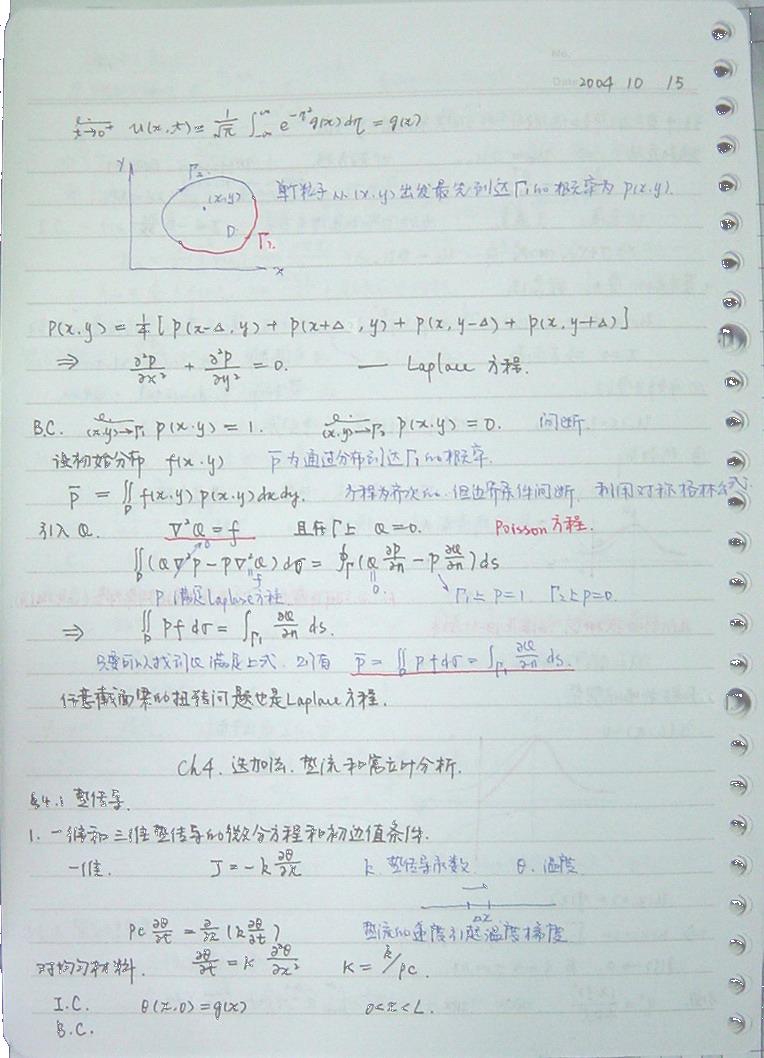 No.
Date 2004 10 15
t→0⁺ u(x,t) = 1/√π ∫_{-∞}^{∞} e^{-η²} g(x) dη = g(x)
y Γ₂ (x,y) D Γ₁ x
单个粒子从(x,y)出发最先到达Γ₁的概率为 p(x,y).
P(x,y) = 1/4 [ p(x-Δ,y) + p(x+Δ,y) + p(x,y-Δ) + p(x,y+Δ) ]
⇒ ∂²p/∂x² + ∂²p/∂y² = 0. — Laplace 方程.
B.C. (x,y)→Γ₁ p(x,y) = 1. (x,y)→Γ₂ p(x,y) = 0. 间断.
设初始分布 f(x,y) p̄ 为通过分布到达Γ₁的概率.
p̄ = ∬_D f(x,y) p(x,y) dxdy. 方程为齐次的, 但边界条件间断. 利用对称格林公式.
引入 Q. ∇²Q = f 且在Γ上 Q=0. Poisson 方程.
∬_D (Q∇²p - p∇²Q) dσ = ∮_Γ (Q ∂p/∂n - p ∂Q/∂n) ds
0 f 0
p 满足Laplace方程. Γ₁上 p=1. Γ₂上 p=0.
⇒ ∬_D pf dσ = ∫_{Γ₁} ∂Q/∂n ds.
只要可以找到Q满足上式, 则有 p̄ = ∬_D pf dσ = ∫_{Γ₁} ∂Q/∂n ds.
任意截面梁的扭转问题也是Laplace方程.
Ch4. 迭加法. 热流和富立叶分析.
§4.1 热传导.
1. 一维和三维热传导的微分方程和初边值条件.
一维. J = -k ∂θ/∂x k 热传导系数. θ. 温度
Δx
ρc ∂θ/∂t = ∂/∂x (k ∂θ/∂t) 热流的速度引起温度梯度
对均匀材料. ∂θ/∂t = κ ∂²θ/∂x² κ = k/ρc.
I.C. θ(x,0) = g(x) 0<x<L.
B.C.